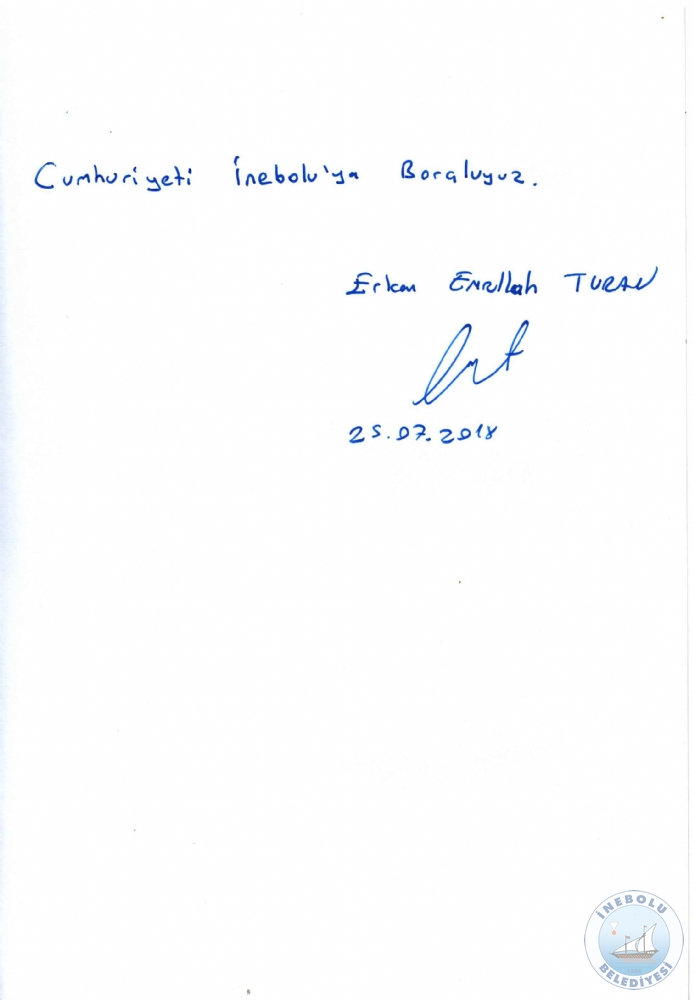 Cumhuriyeti İnebolu'ya Boraluyuz.
Erkan Emrullah TURAN
25.07.2018
İNEBOLU
BELEDİYESİ